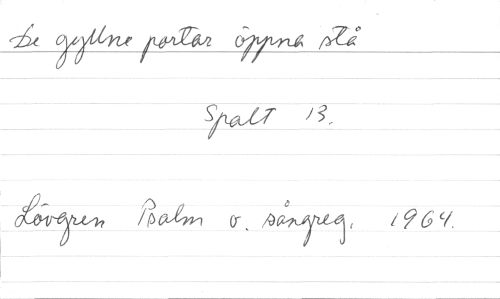 De gyllne portar öppna stå
Spalt 13.
Lövgren Psalm o. sångreg. 1964.